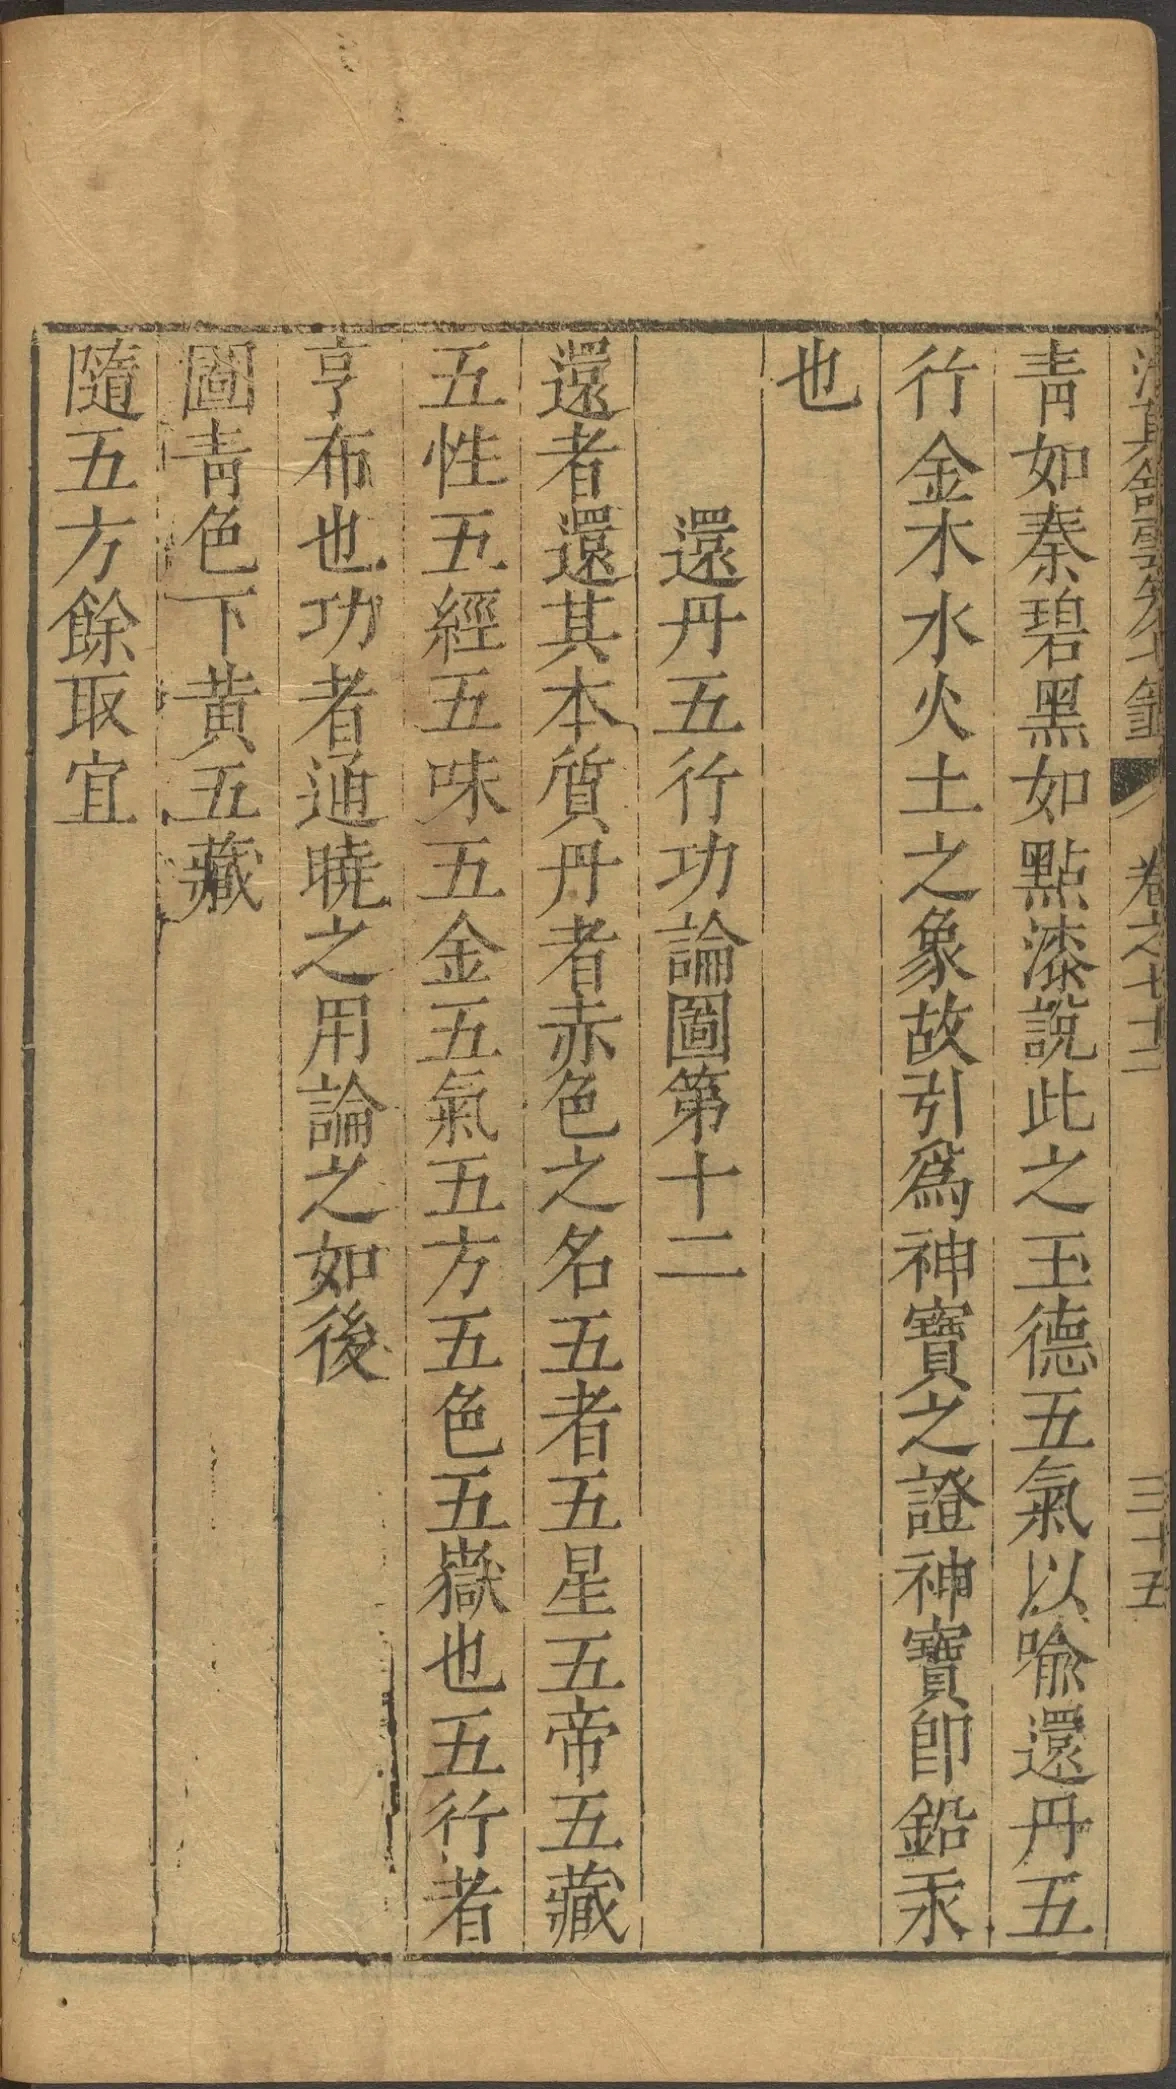 卷之七十二 三十五
青如秦碧黑如點漆說此之玉德五氣以喻還丹五
行金木水火土之象故引爲神寶之證神寶卽鉛汞
也
還丹五行功論圖第十二
還者還其本質丹者赤色之名五者五星五帝五藏
五性五經五味五金五氣五方五色五嶽也五行者
亨布也功者通曉之用論之如後
圖青色下黃五藏
隨五方餘取宜